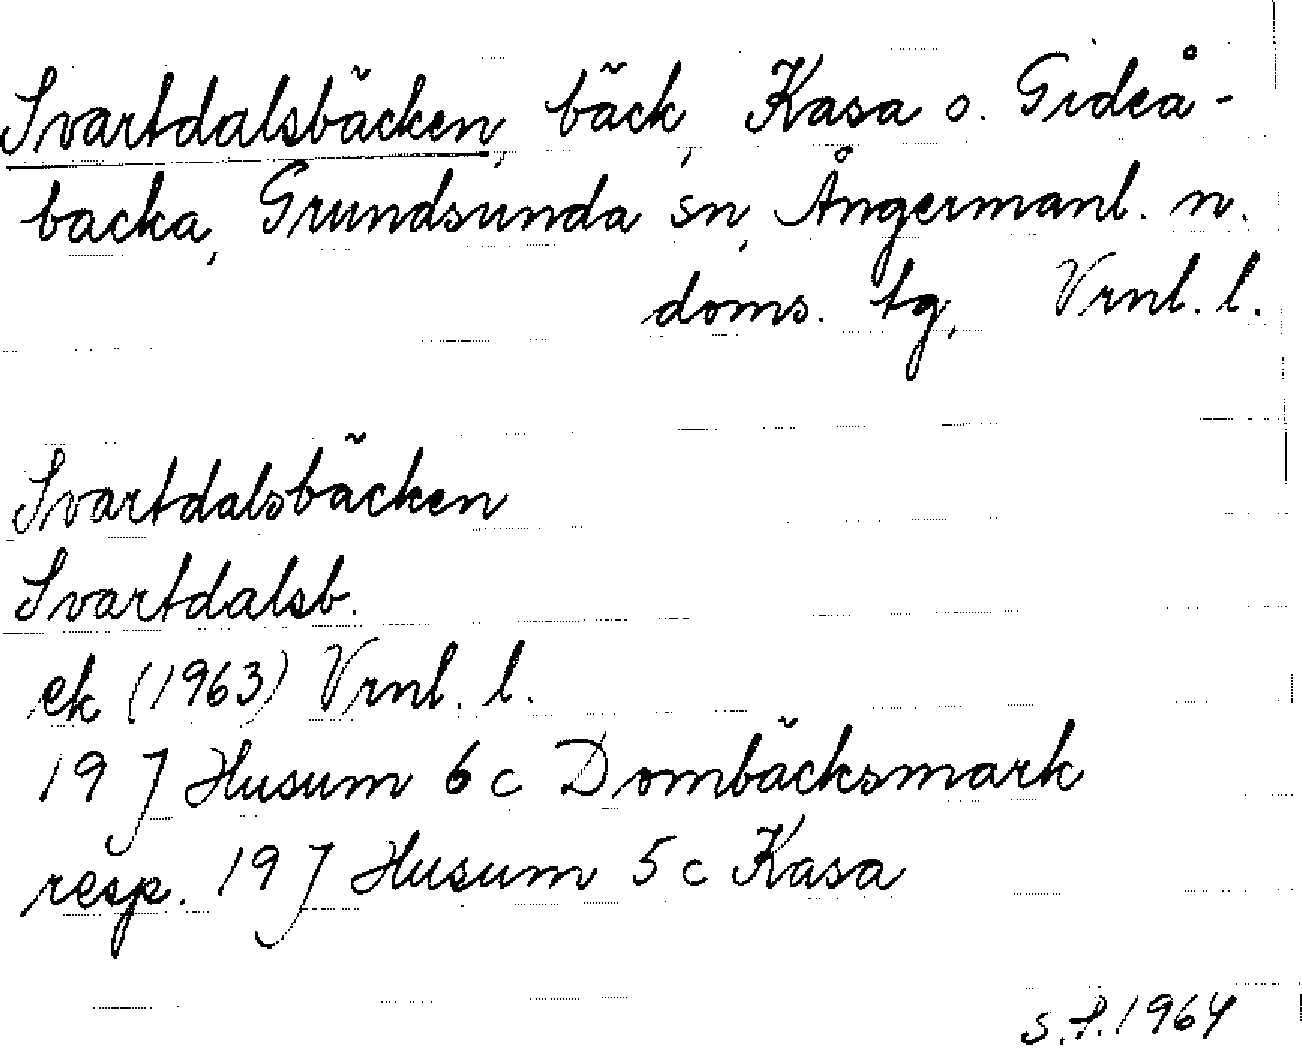 Svartdalsbäcken, bäck, Kasa o. Gideå-
backa, Grundsunda sn, Ångermanl. n.
doms. tg, Vrnl. l.
Svartdalsbäcken
Svartdalsb.
ek (1963) Vrnl. l.
19 J Husum 6 c Dombäcksmark
resp. 19 J Husum 5 c Kasa
S.P. 1964